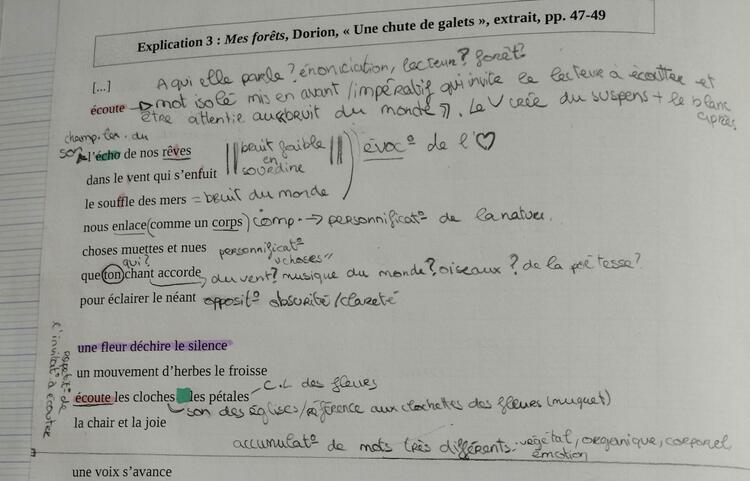 Explication 3 : Mes forêts, Dorion, « Une chute de galets », extrait, pp. 47-49
[...] A qui elle parle ? énonciation, lecteur ? forêt ?
écoute → mot isolé mis en avant / impératif qui invite le lecteur à écouter et
être attentif aux "bruit du monde". Le V crée du suspens + le blanc
après.
champ. lex. du
son
l'écho de nos rêves bruit faible
en
sourdine évoc° de l'♡
dans le vent qui s'enfuit
le souffle des mers = bruit du monde
nous enlace (comme un corps) comp. → personnificat° de la nature.
choses muettes et nues personnificat°
"choses"
qui ?
que ton chant accorde, du vent ? musique du monde ? oiseaux ? de la poétesse ?
pour éclairer le néant opposit° obscurité / clareté
une fleur déchire le silence
un mouvement d'herbes le froisse
écoute les cloches les pétales C.L des fleurs
son des églises / référence aux clochettes des fleurs (muguet)
la chair et la joie
de
l'invitat° à écouter
accumulat° de mots très différents. végétal, organique, corporel
émotion
une voix s'avance